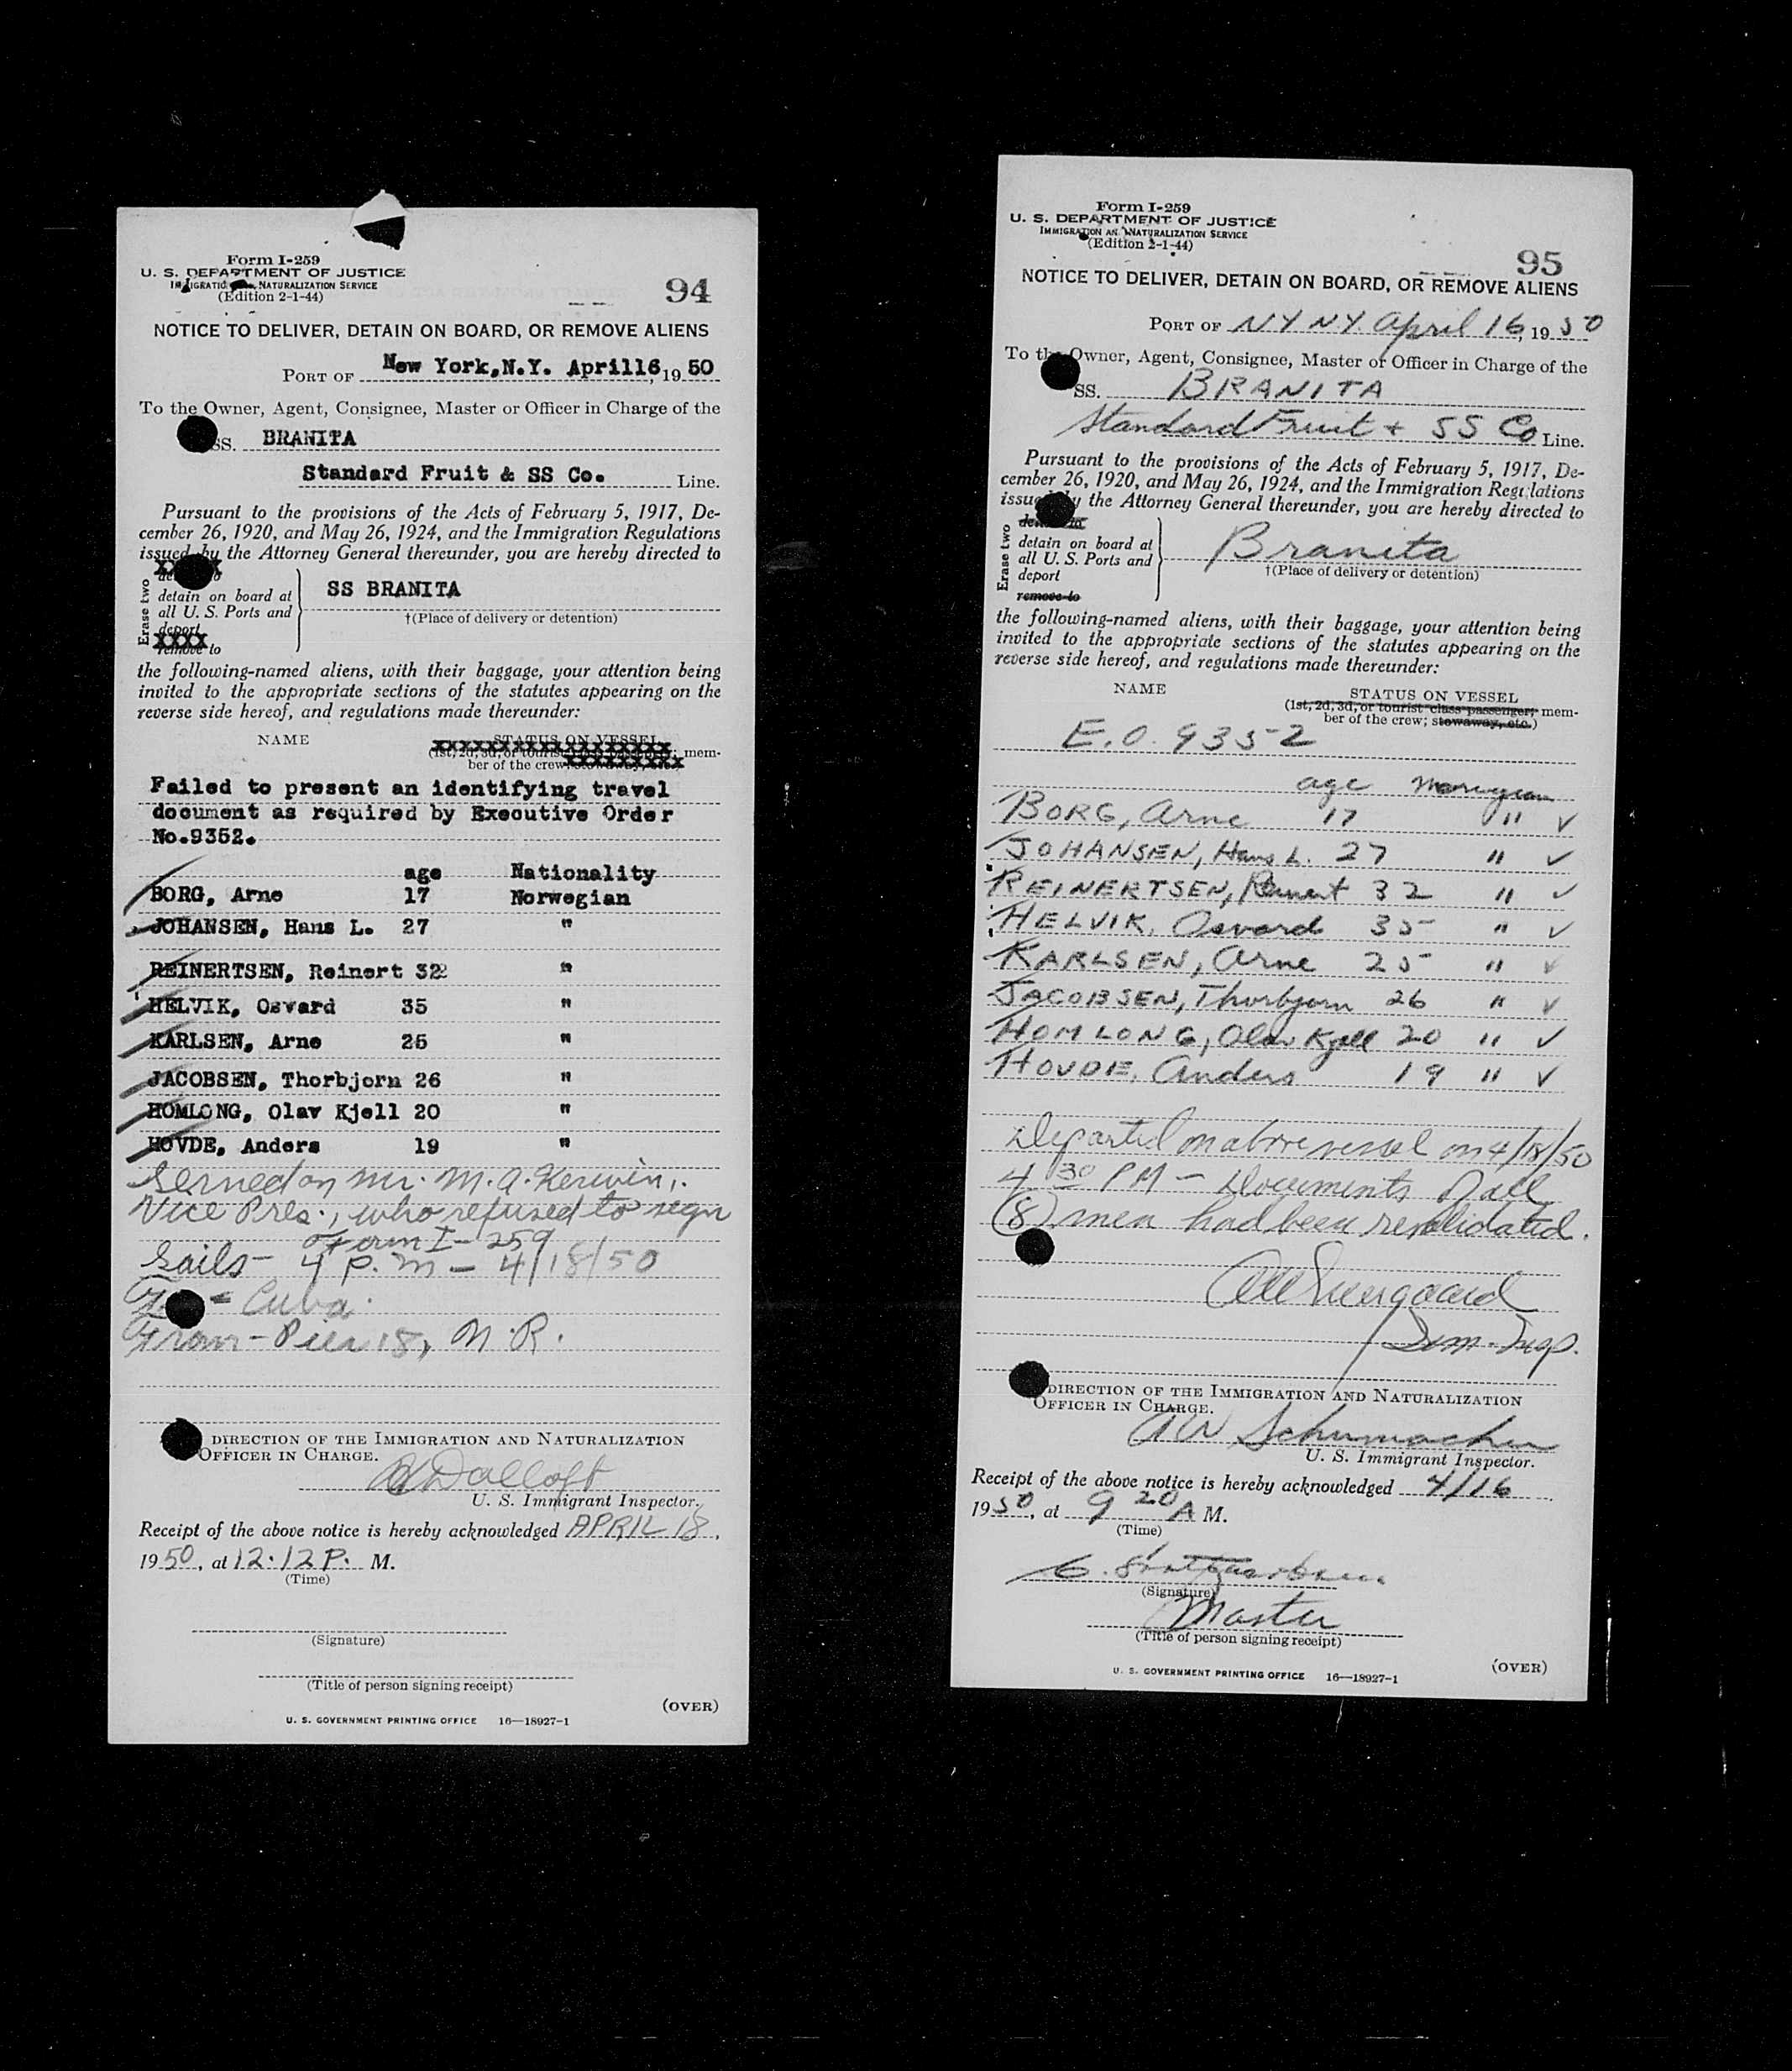 Form I-259
U. S. DEPARTMENT OF JUSTICE
IMMIGRATION NATURALIZATION SERVICE
(Edition 2-1-44)
94
NOTICE TO DELIVER, DETAIN ON BOARD, OR REMOVE ALIENS
PORT OF New York,N.Y. April16, 19 50
To the Owner, Agent, Consignee, Master or Officer in Charge of the
SS. BRANITA
Standard Fruit & SS Co. Line.
Pursuant to the provisions of the Acts of February 5, 1917, De-
cember 26, 1920, and May 26, 1924, and the Immigration Regulations
issued by the Attorney General thereunder, you are hereby directed to
Erase two
detain on board at
all U. S. Ports and
deport
remove to
SS BRANITA
†(Place of delivery or detention)
the following-named aliens, with their baggage, your attention being
invited to the appropriate sections of the statutes appearing on the
reverse side hereof, and regulations made thereunder:
NAME STATUS ON VESSEL
(1st, 2d, 3d, or tourist class passenger; mem-
ber of the crew; stowaway, etc.)
Failed to present an identifying travel
document as required by Executive Order
No.9352.
age Nationality
BORG, Arne 17 Norwegian
JOHANSEN, Hans L. 27 "
REINERTSEN, Reinert 32 "
HELVIK, Osvard 35 "
KARLSEN, Arne 25 "
JACOBSEN, Thorbjorn 26 "
HOMLONG, Olav Kjell 20 "
HOVDE, Anders 19 "
Served on Mr. M. A. Kerwin,
Vice Pres., who refused to sign
Form I-259
Sails - 4 P.M - 4/18/50
To - Cuba.
From - Pier 18, N.R.
DIRECTION OF THE IMMIGRATION AND NATURALIZATION
OFFICER IN CHARGE.
U. S. Immigrant Inspector.
Receipt of the above notice is hereby acknowledged APRIL 18,
19 50, at 12:12 P. M.
(Time)
(Signature)
(Title of person signing receipt)
(OVER)
U. S. GOVERNMENT PRINTING OFFICE 16—18927-1
Form I-259
U. S. DEPARTMENT OF JUSTICE
IMMIGRATION AN NATURALIZATION SERVICE
(Edition 2-1-44)
95
NOTICE TO DELIVER, DETAIN ON BOARD, OR REMOVE ALIENS
PORT OF N Y N.Y. April 16, 19 50
To the Owner, Agent, Consignee, Master or Officer in Charge of the
SS. BRANITA
Standard Fruit + SS Co Line.
Pursuant to the provisions of the Acts of February 5, 1917, De-
cember 26, 1920, and May 26, 1924, and the Immigration Regulations
issued by the Attorney General thereunder, you are hereby directed to
Erase two
detain on board at
all U. S. Ports and
deport
remove to
Branita
†(Place of delivery or detention)
the following-named aliens, with their baggage, your attention being
invited to the appropriate sections of the statutes appearing on the
reverse side hereof, and regulations made thereunder:
NAME STATUS ON VESSEL
(1st, 2d, 3d, or tourist class passenger; mem-
ber of the crew; stowaway, etc.)
E.O. 9352
age Norwegian
BORG, Arne 17 " ✓
JOHANSEN, Hans L. 27 " ✓
REINERTSEN, Reinert 32 " ✓
HELVIK, Osvard 35 " ✓
KARLSEN, Arne 25 " ✓
JACOBSEN, Thorbjorn 26 " ✓
HOMLONG, Olav Kjell 20 " ✓
HOVDE, Anders 19 " ✓
Departed on above vessel on 4/18/50
4 30 PM - Documents of all
(8) men had been revalidated.
Imm. Insp.
DIRECTION OF THE IMMIGRATION AND NATURALIZATION
OFFICER IN CHARGE.
A W Schumacher
U. S. Immigrant Inspector.
Receipt of the above notice is hereby acknowledged 4/16
19 50, at 9 20 A M.
(Time)
(Signature)
Master
(Title of person signing receipt)
(OVER)
U. S. GOVERNMENT PRINTING OFFICE 16—18927-1